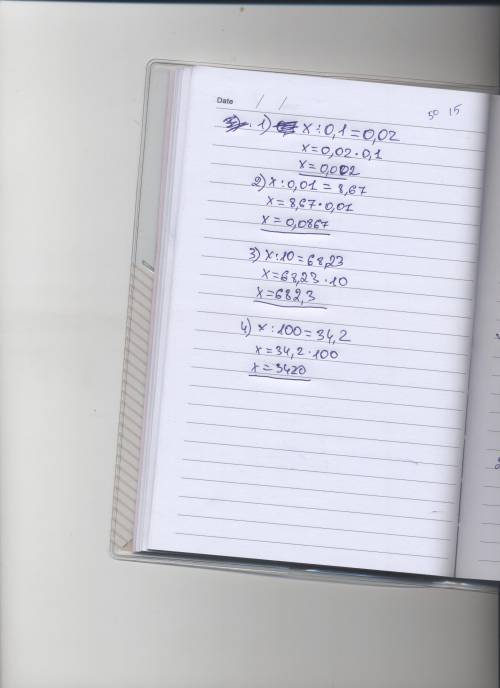 Date / /
50 15
1) x:0,1=0,02
x=0,02·0,1
x=0,002
2) x:0,01=8,67
x=8,67·0,01
x=0,0867
3) x:10=68,23
x=68,23·10
x=682,3
4) x:100=34,2
x=34,2·100
x=3420